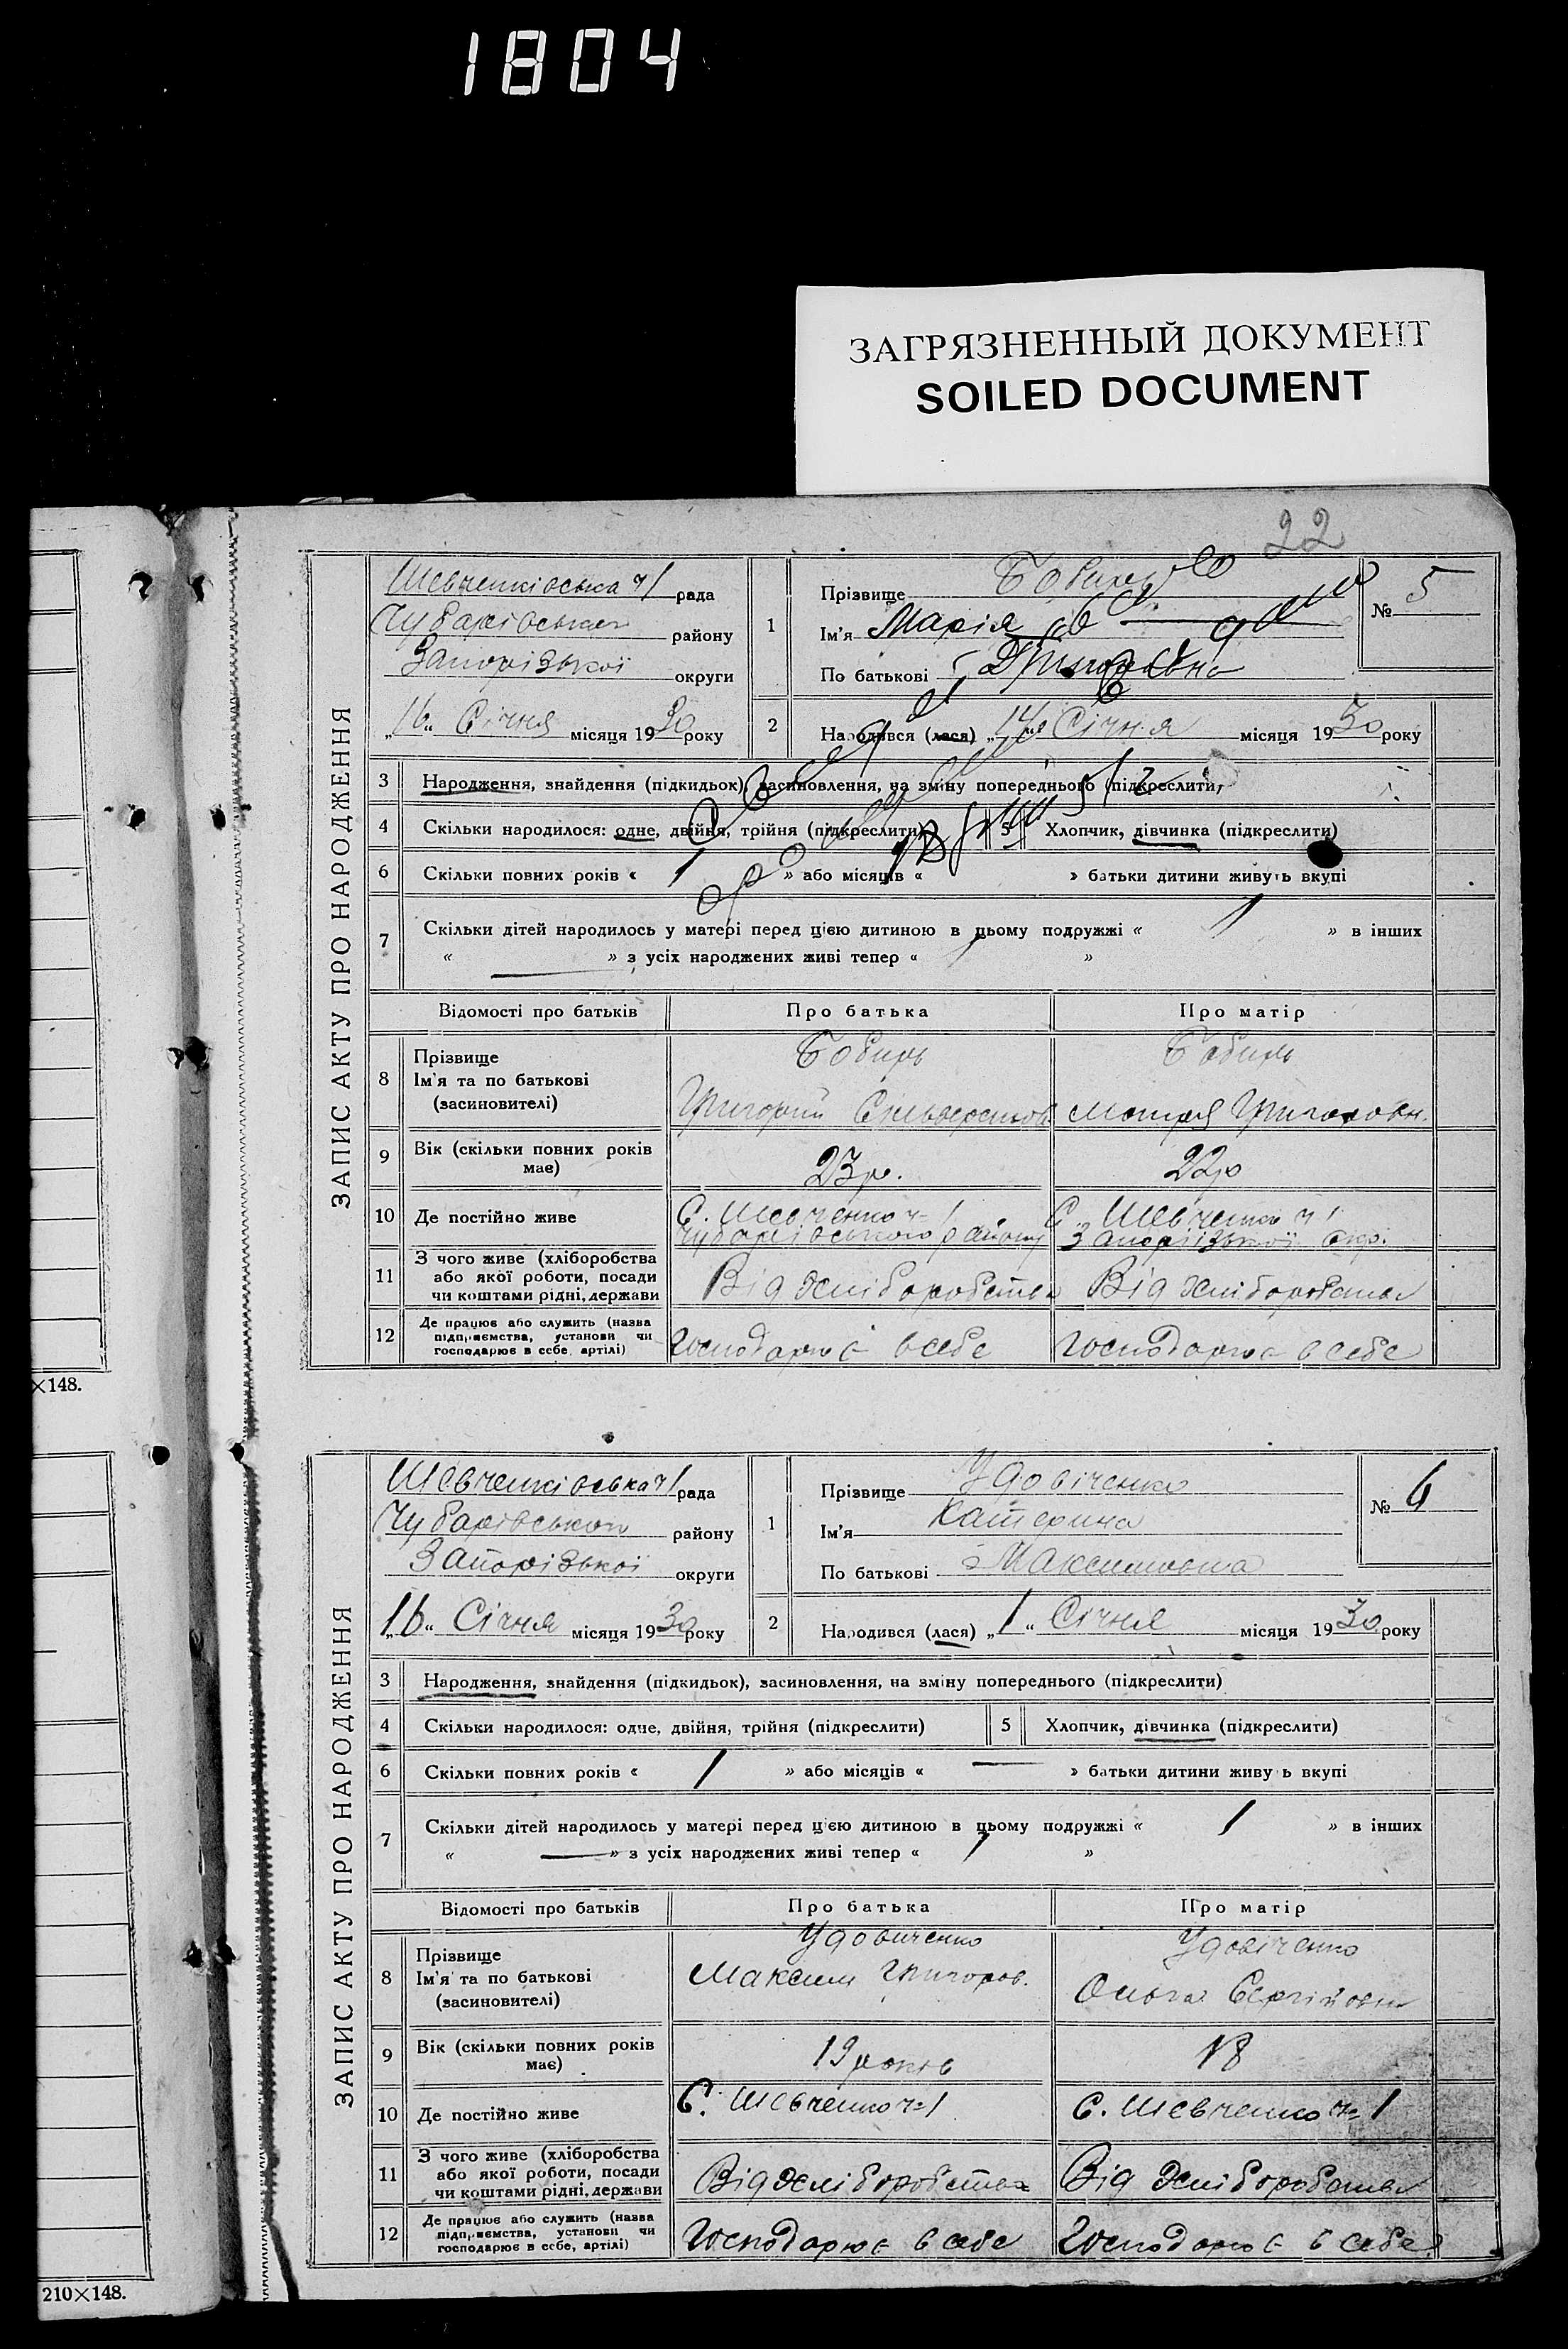 1804
ЗАГРЯЗНЕННЫЙ ДОКУМЕНТ
SOILED DOCUMENT
22
ЗАПИС АКТУ ПРО НАРОДЖЕННЯ
Шевченківська ч1 рада
Чубарівського району
Запорізької округи
„16“ Січня місяця 1930 року
1 Прізвище Бобирь
Ім'я Марія
По батькові Григоровна
№ 5
2 Народився (лася) „14“ Січня місяця 1930 року
3 Народження, знайдення (підкидьок), засиновлення, на зміну попереднього (підкреслити)
4 Скільки народилося: одне, двійня, трійня (підкреслити) 5 Хлопчик, дівчинка (підкреслити)
6 Скільки повних років « 1 » або місяців « » батьки дитини живуть вкупі
7 Скільки дітей народилось у матері перед цією дитиною в цьому подружжі « 1 » в інших
« — » з усіх народжених живі тепер « 1 »
Відомості про батьків Про батька Про матір
8 Прізвище Ім'я та по батькові (засиновителі)
Бобирь Бобирь
Григорий Мотря Григоровн.
9 Вік (скільки повних років має) 23 р. 22 р
10 Де постійно живе С. Шевченко ч=1 С. Шевченко ч 1
Чубарівського району Запорізької окр.
11 З чого живе (хліборобства або якої роботи, посади чи коштами рідні, держави Від хліборобства Від хліборобства
12 Де працює або служить (назва підприємства, установи чи господарює в себе, артілі) Господарює в себе Господарює в себе
×148.
ЗАПИС АКТУ ПРО НАРОДЖЕННЯ
Шевченківська ч1 рада
Чубарівського району
Запорізької округи
„16“ Січня місяця 1930 року
1 Прізвище Удовіченко
Ім'я Катерина
По батькові Максимовна
№ 6
2 Народився (лася) „1“ Січня місяця 1930 року
3 Народження, знайдення (підкидьок), засиновлення, на зміну попереднього (підкреслити)
4 Скільки народилося: одне, двійня, трійня (підкреслити) 5 Хлопчик, дівчинка (підкреслити)
6 Скільки повних років « 1 » або місяців « — » батьки дитини живуть вкупі
7 Скільки дітей народилось у матері перед цією дитиною в цьому подружжі « 1 » в інших
« — » з усіх народжених живі тепер « 1 »
Відомості про батьків Про батька Про матір
8 Прізвище Ім'я та по батькові (засиновителі)
Удовиченко Удовіченко
Максим Григоров. Ольга Сергійовн
9 Вік (скільки повних років має) 19 років 18
10 Де постійно живе С. Шевченко ч=1 С. Шевченко ч=1
11 З чого живе (хліборобства або якої роботи, посади чи коштами рідні, держави Від хліборобства Від хліборобства
12 Де працює або служить (назва підприємства, установи чи господарює в себе, артілі) Господарює в себе Господарює в себе
210×148.